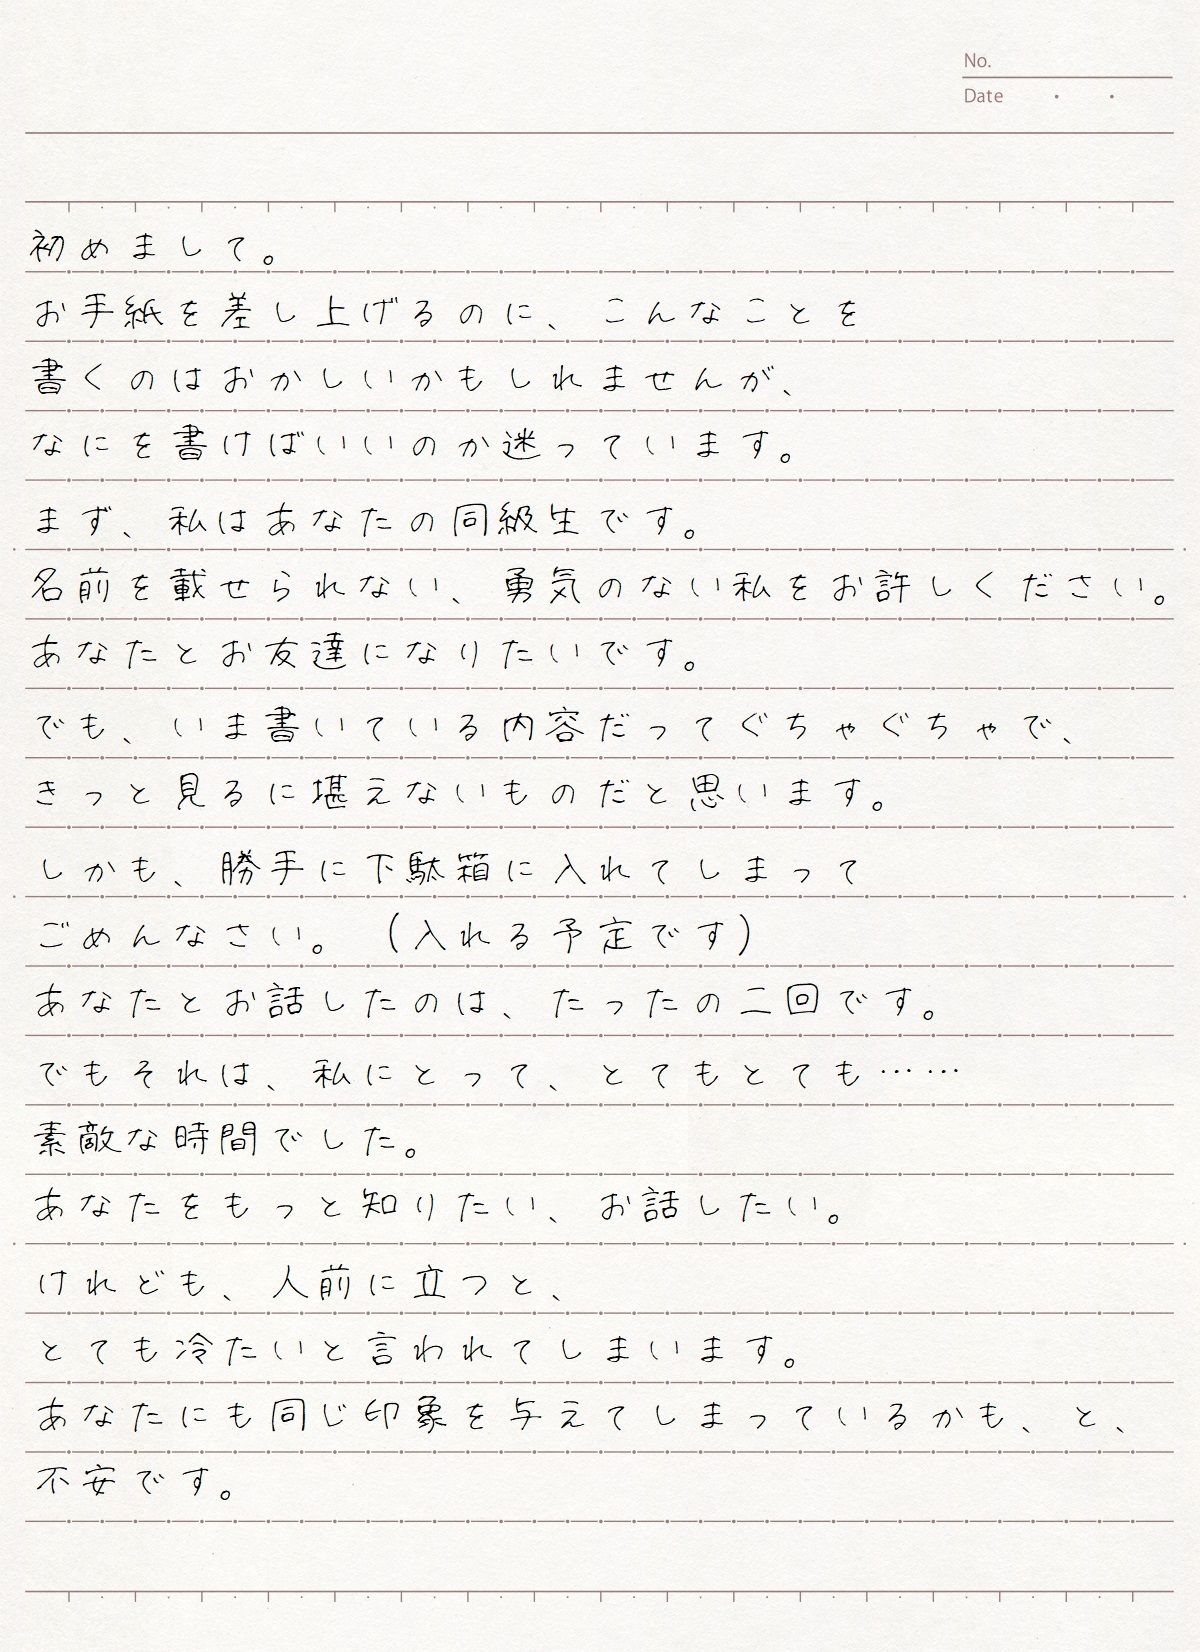 No.
Date ・ ・
初めまして。
お手紙を差し上げるのに、こんなことを
書くのはおかしいかもしれませんが、
なにを書けばいいのか迷っています。
まず、私はあなたの同級生です。
名前を載せられない、勇気のない私をお許しください。
あなたとお友達になりたいです。
でも、いま書いている内容だってぐちゃぐちゃで、
きっと見るに堪えないものだと思います。
しかも、勝手に下駄箱に入れてしまって
ごめんなさい。（入れる予定です）
あなたとお話したのは、たったの二回です。
でもそれは、私にとって、とてもとても……
素敵な時間でした。
あなたをもっと知りたい、お話したい。
けれども、人前に立つと、
とても冷たいと言われてしまいます。
あなたにも同じ印象を与えてしまっているかも、と、
不安です。